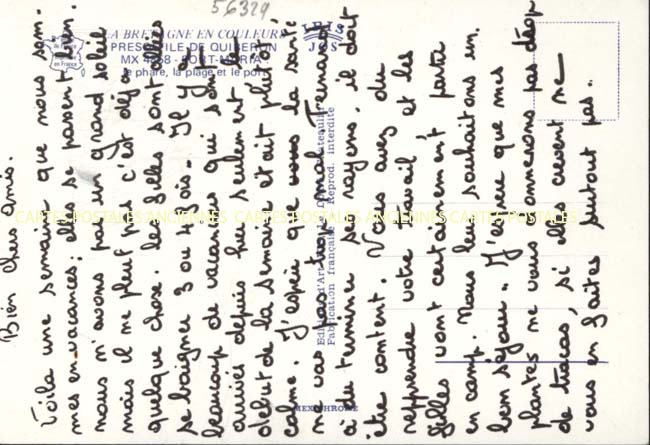 56329
LA BRETAGNE EN COULEURS
PRESQU'ILE DE QUIBERON
MX 4358 - PORT-MARIA
Le phare, la plage et le port
JOS
Bien chers amis.
Voilà une semaine que nous som-
mes en vacances; elles se passent bien.
nous n'avons pas un grand soleil
mais il ne pleut pas c'est déjà
quelque chose. les filles sont allées
se baigner 3 ou 4 fois. Il y a
beaucoup de vacanciers qui sont
arrivés depuis hier seulement le
début de la semaine était plutôt
calme. J'espère que la santé
ne vas pas trop mal Fernand
à du terminer ses rayons, il doit
être content. Vous avez du
repprendre votre travail et les
filles vont certainement partir
en camp. Nous leur souhaitons un
bon séjour. J'espère que mes
plantes ne vous emmenons pas déop
de tracas, si elles crevent ne
vous en faites surtout pas.
Fabrication française Reprod. interdite
MEXICHROME
CARTES POSTALES ANCIENNES CARTES POSTALES ANCIENNES CARTES POSTALES